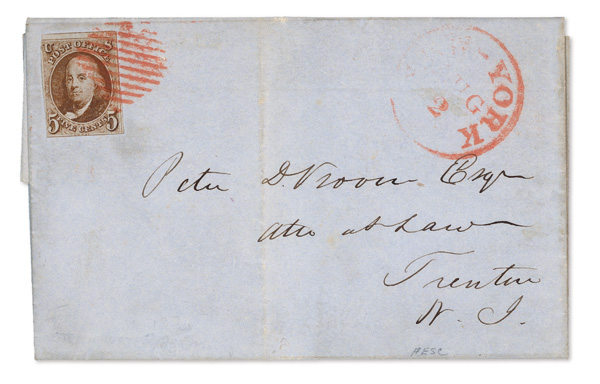 U S
POST OFFICE
5 FIVE CENTS 5
NEW-YORK
AUG
2
Peter D. Vroom Esqr
Atto at Law
Trenton
N. J.
AESC